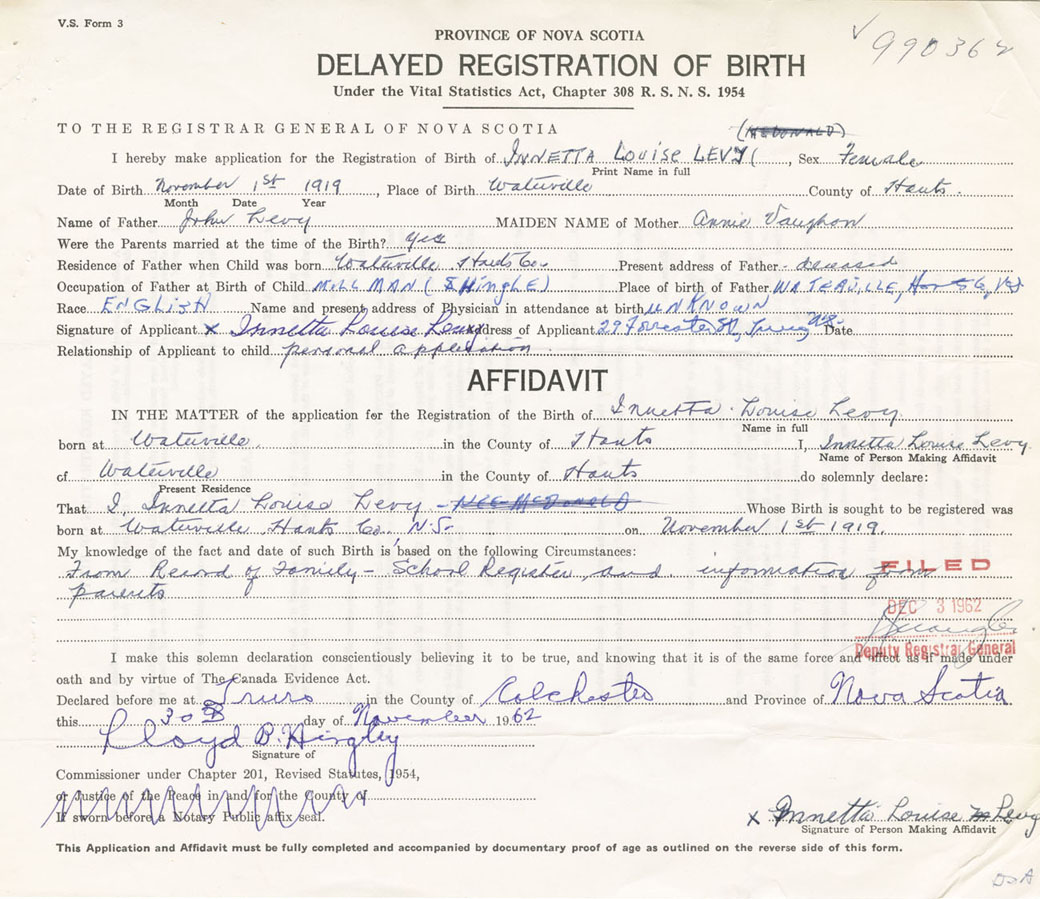 V.S. Form 3
990362
PROVINCE OF NOVA SCOTIA
DELAYED REGISTRATION OF BIRTH
Under the Vital Statistics Act, Chapter 308 R. S. N. S. 1954
TO THE REGISTRAR GENERAL OF NOVA SCOTIA (McDONALD)
I hereby make application for the Registration of Birth of INNETTA LOUISE LEVY (, Sex Female
Print Name in full
Date of Birth November 1st 1919, Place of Birth Waterville County of Hants.
Month Date Year
Name of Father John Levy MAIDEN NAME of Mother Annie Vaughon
Were the Parents married at the time of the Birth? Yes
Residence of Father when Child was born Waterville Hants Co. Present address of Father - deceased
Occupation of Father at Birth of Child MILL MAN (SHINGLE) Place of birth of Father WATERVILLE,
Race ENGLISH Name and present address of Physician in attendance at birth UNKNOWN
Signature of Applicant x Innetta Louise Levy Address of Applicant 22 Forrester St, Truro, N.S. Date
Relationship of Applicant to child personal application.
AFFIDAVIT
IN THE MATTER of the application for the Registration of the Birth of Innetta Louise Levy.
Name in full
born at Waterville. in the County of Hants I, Innetta Louise Levy.
Name of Person Making Affidavit
of Waterville in the County of Hants do solemnly declare:
Present Residence
That I, Innetta Louise Levy - NEE McDONALD Whose Birth is sought to be registered was
born at Waterville Hants Co., N.S. on November 1st 1919.
My knowledge of the fact and date of such Birth is based on the following Circumstances:
From Record of Family - School Register and information from
parents
FILED
DEC 3 1962
Deputy Registrar General
I make this solemn declaration conscientiously believing it to be true, and knowing that it is of the same force and effect as if made under
oath and by virtue of The Canada Evidence Act.
Declared before me at Truro in the County of Colchester and Province of Nova Scotia.
this 30th day of November 1962
Lloyd B. Hingley
Signature of
Commissioner under Chapter 201, Revised Statutes, 1954,
or Justice of the Peace in and for the County of
If sworn before a Notary Public affix seal.
x Innetta Louise Levy
Signature of Person Making Affidavit
This Application and Affidavit must be fully completed and accompanied by documentary proof of age as outlined on the reverse side of this form.